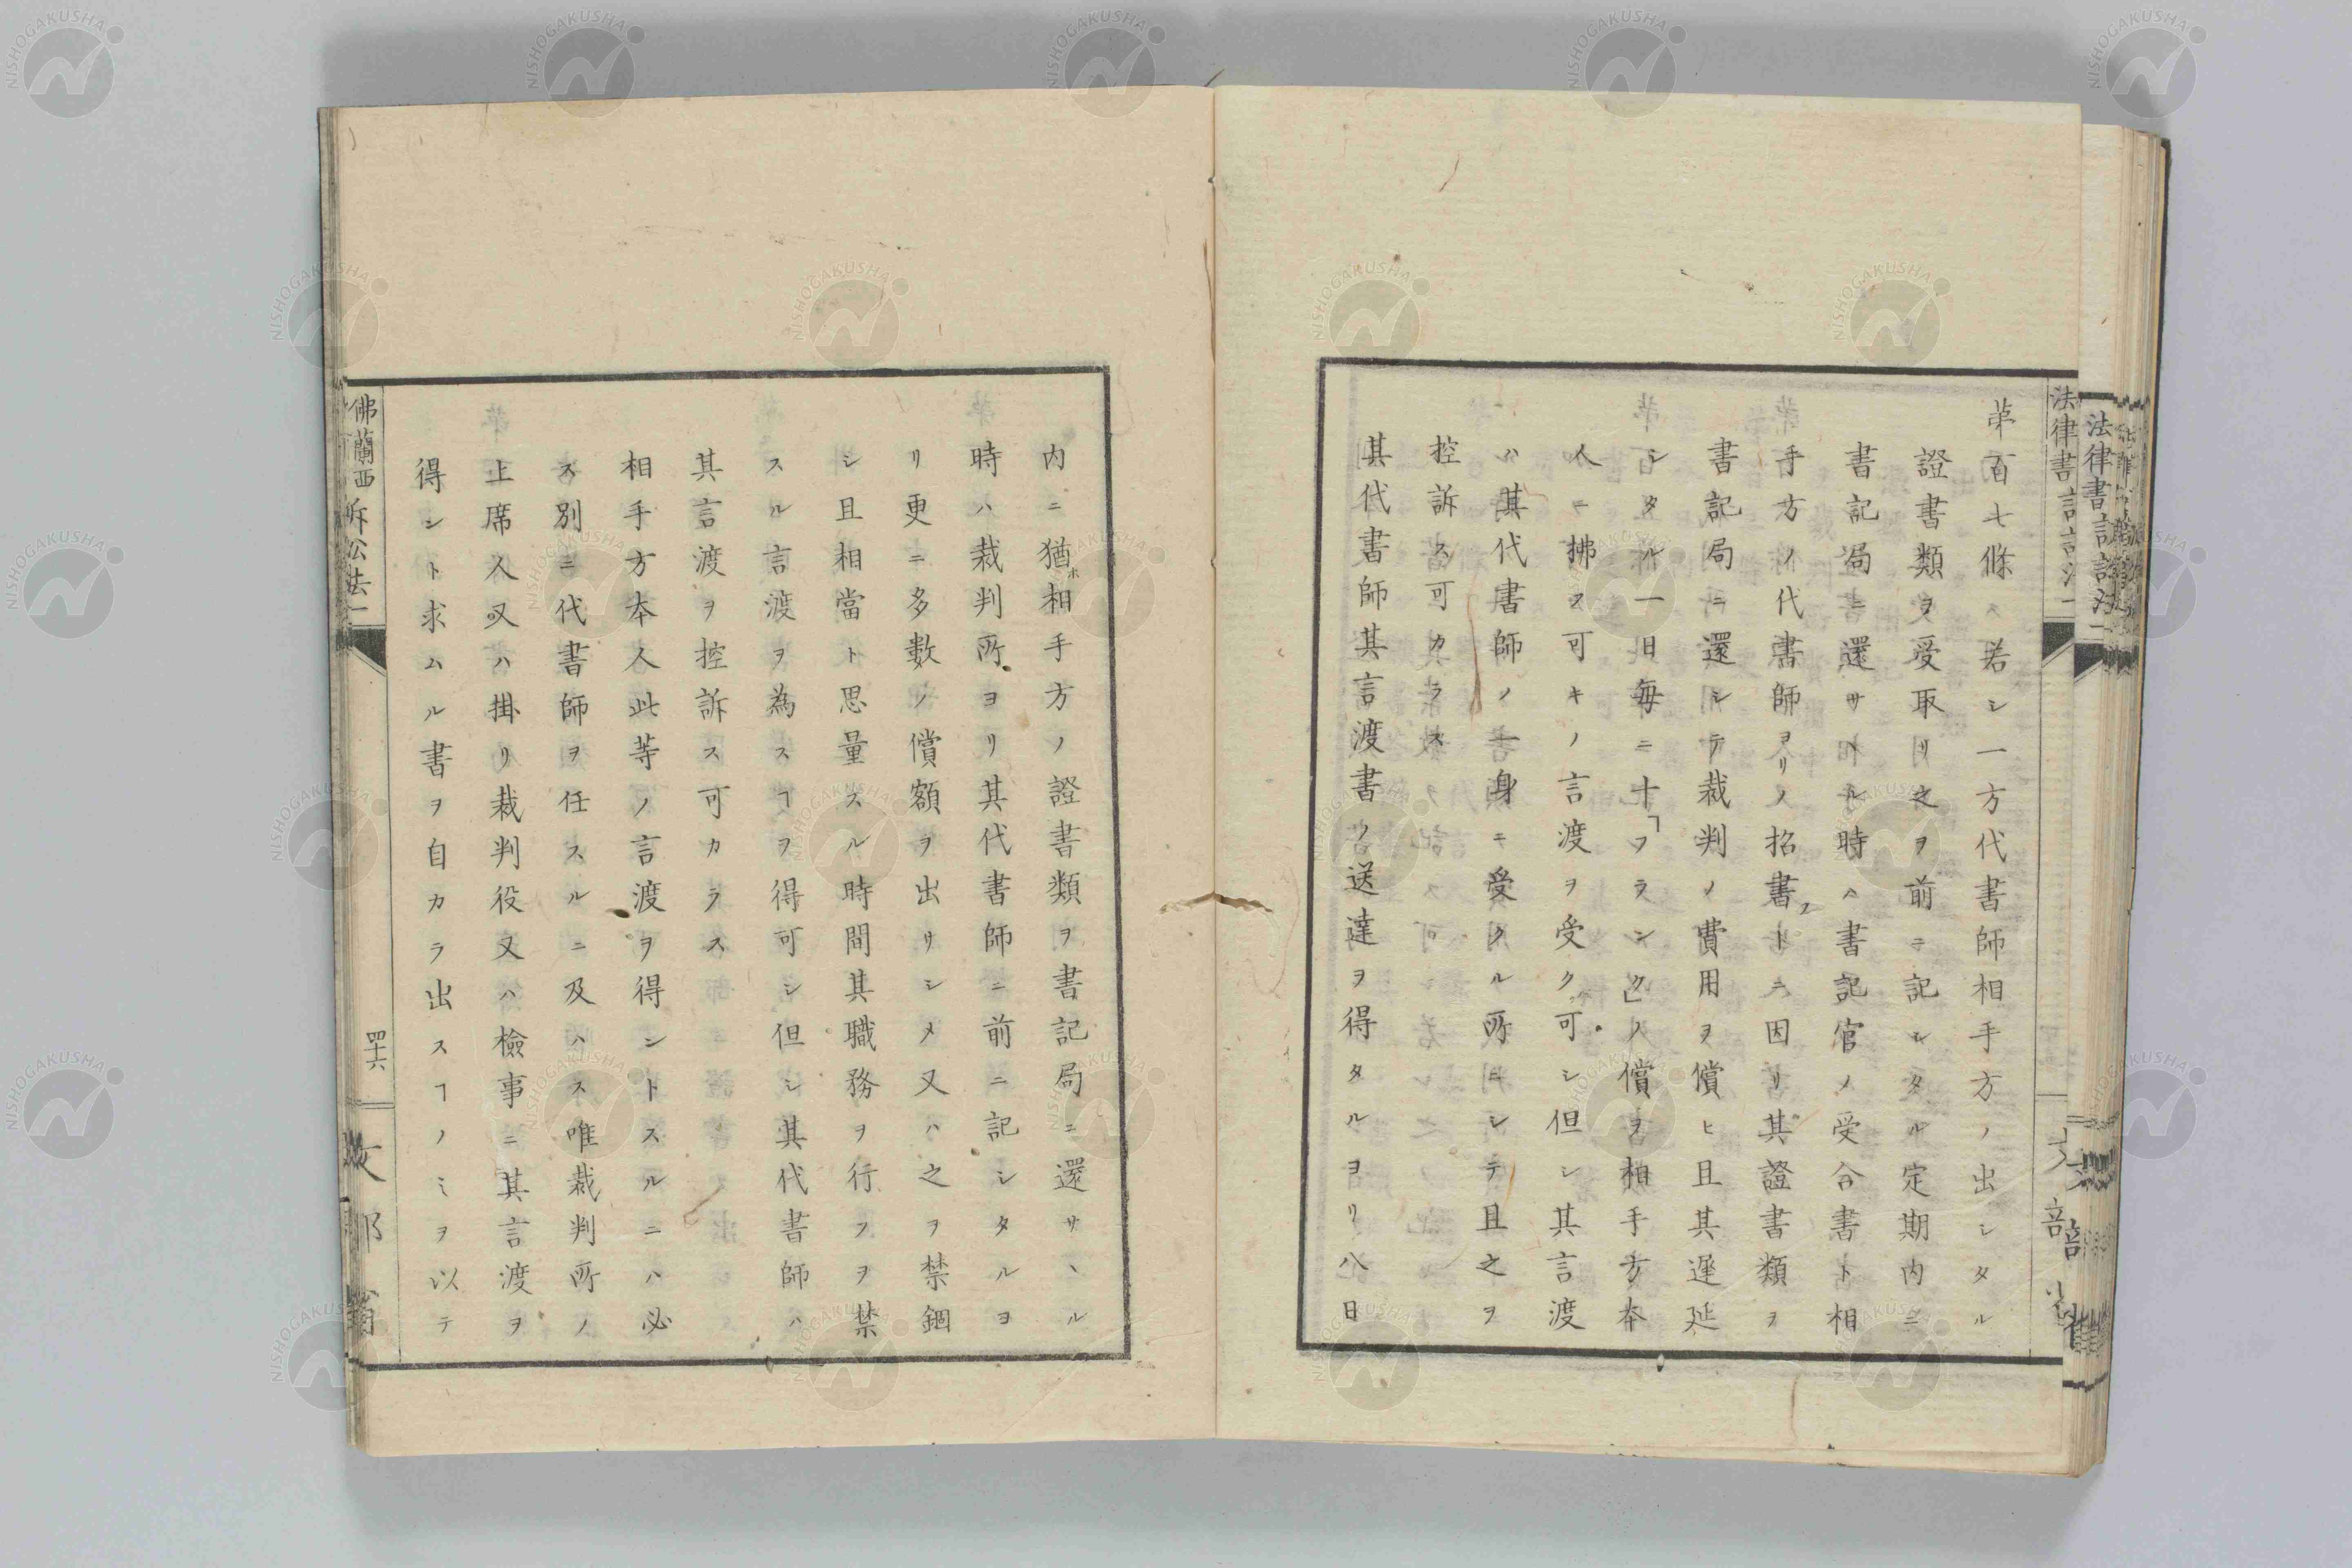 第百七條 若シ一方代書師相手方ノ出シタル
證書類ヲ受取リ之ヲ前ニ記シタル定期内ニ
書記局ニ還サヽル時ハ書記官ノ受合書ト相
手方ノ代書師ヨリノ招書トニ因リ其證書類ヲ
書記局ニ還シテ裁判ノ費用ヲ償ヒ且其遲延
シタル一日毎ニ十「フランク」ノ償ヲ相手方本
人ニ拂フ可キノ言渡ヲ受ク可シ但シ其言渡
ハ其代書師ノ一身ニ受クル所ニシテ且之ヲ
控訴ス可カラス
其代書師其言渡書ノ送達ヲ得タルヨリ八日
内ニ猶ホ相手方ノ證書類ヲ書記局ニ還サヽル
時ハ裁判所ヨリ其代書師ニ前ニ記シタルヨ
リ更ニ多數ノ償額ヲ出サシメ又ハ之ヲ禁錮
シ且相當ト思量スル時間其職務ヲ行フヲ禁
スル言渡ヲ為スヿヲ得可シ但シ其代書師ハ
其言渡ヲ控訴ス可カラス
相手方本人此等ノ言渡ヲ得ントスルニハ必
ス別ニ代書師ヲ任スルニ及ハス唯裁判所ノ
上席人又ハ掛リ裁判役又ハ檢事ニ其言渡ヲ
得ント求ムル書ヲ自カラ出スヿノミヲ以テ
佛蘭西訴訟法一
四十六
文部省